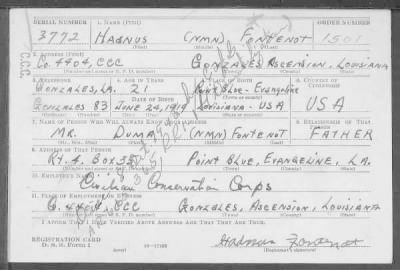 SERIAL NUMBER 1. NAME (Print) ORDER NUMBER
3772 HADNUS (NMN) FONTENOT 1501
(First) (Middle) (Last)
2. ADDRESS (Print)
Co. 4404, CCC GONZALES, ASCENSION, LOUISIANA
(Number and street or R. F. D. number) (Town) (County) (State)
C.C.C.
3. TELEPHONE 4. AGE IN YEARS 5. PLACE OF BIRTH 6. COUNTRY OF CITIZENSHIP
GONZALES, LA. 21 POINT BLUE - EVANGELINE
DATE OF BIRTH
GONZALES 83 JUNE 24, 1919 LOUISIANA - USA USA
7. NAME OF PERSON WHO WILL ALWAYS KNOW YOUR ADDRESS 8. RELATIONSHIP OF THAT PERSON
MR. DUMA (NMN) FONTENOT FATHER
(Mr., Mrs., Miss) (First) (Middle) (Last)
9. ADDRESS OF THAT PERSON
Rt. 4, Box 35 POINT BLUE, EVANGELINE, LA.
(Number and street or R. F. D. number) (Town) (County) (State)
10. EMPLOYER'S NAME
Civilian Conservation Corps
11. PLACE OF EMPLOYMENT OR BUSINESS
Co. 4404, CCC GONZALES, ASCENSION, LOUISIANA
(Number and street or R. F. D. number) (Town) (County) (State)
I AFFIRM THAT I HAVE VERIFIED ABOVE ANSWERS AND THAT THEY ARE TRUE.
REGISTRATION CARD
D. S. S. Form 1 Hadnus Fontenot
(Registrant's signature)